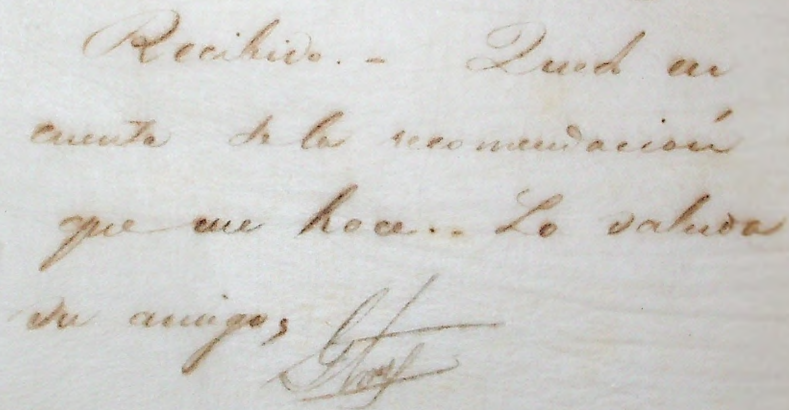 Recibido. - Qued en
cuenta de la recomendación
que me hace.. Lo saluda
su amigo,